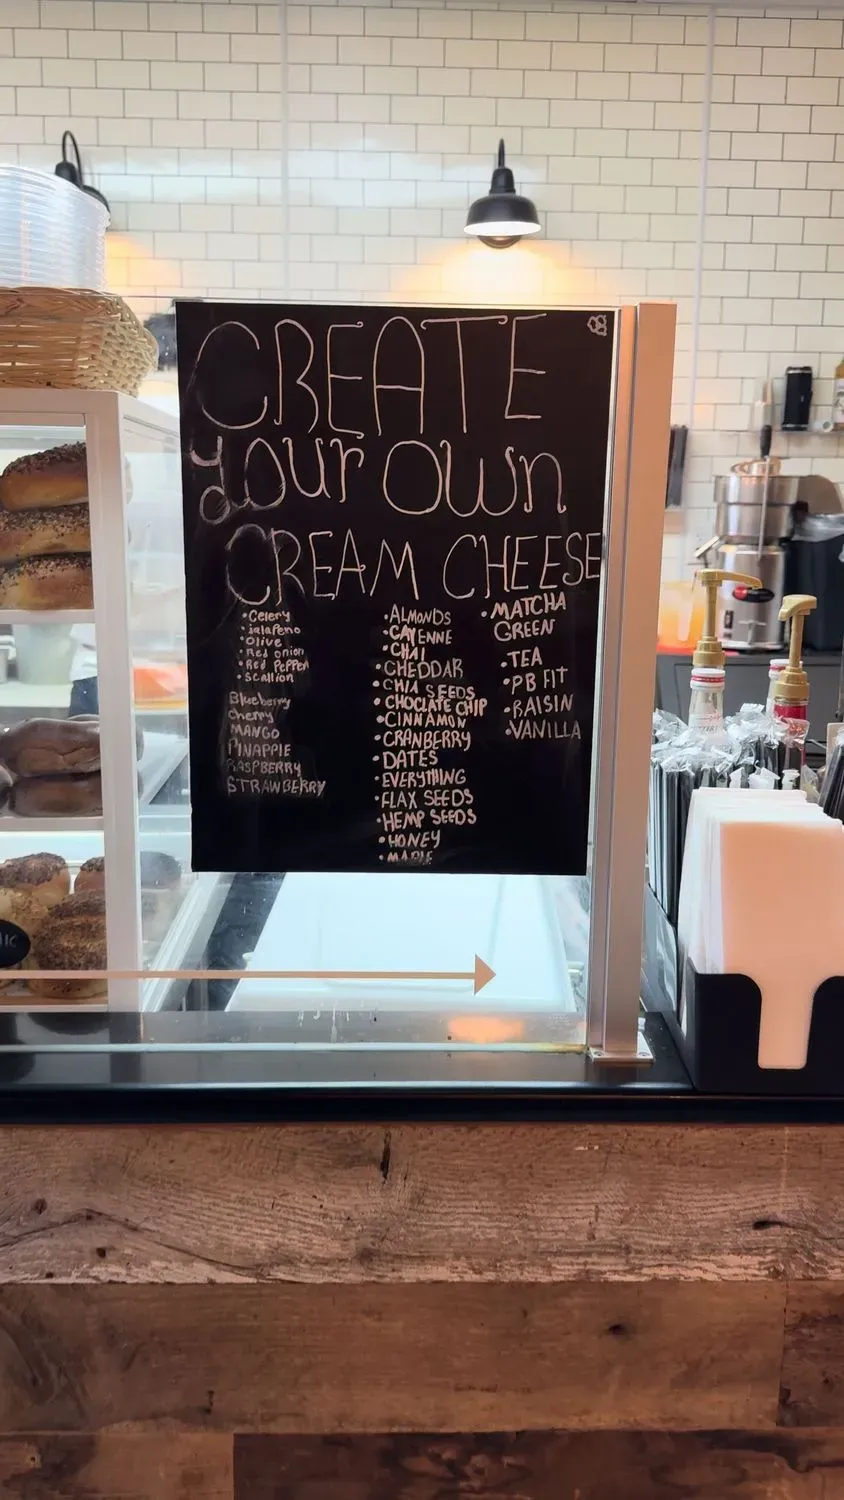 CREATE
your own
CREAM CHEESE
• Celery
• Jalapeno
• Olive
• Red onion
• Red Pepper
• Scallion
Blueberry
Cherry
MANGO
PINAPPIE
RASPBERRY
STRAWBERRY
• ALMONDS
• CAYENNE
• CHAI
• CHEDDAR
• CHIA SEEDS
• CHOCLATE CHIP
• CINNAMON
• CRANBERRY
• DATES
• EVERYTHING
• FLAX SEEDS
• HEMP SEEDS
• HONEY
• MAPLE
• MATCHA
GREEN
• TEA
• PB FIT
• RAISIN
• VANILLA